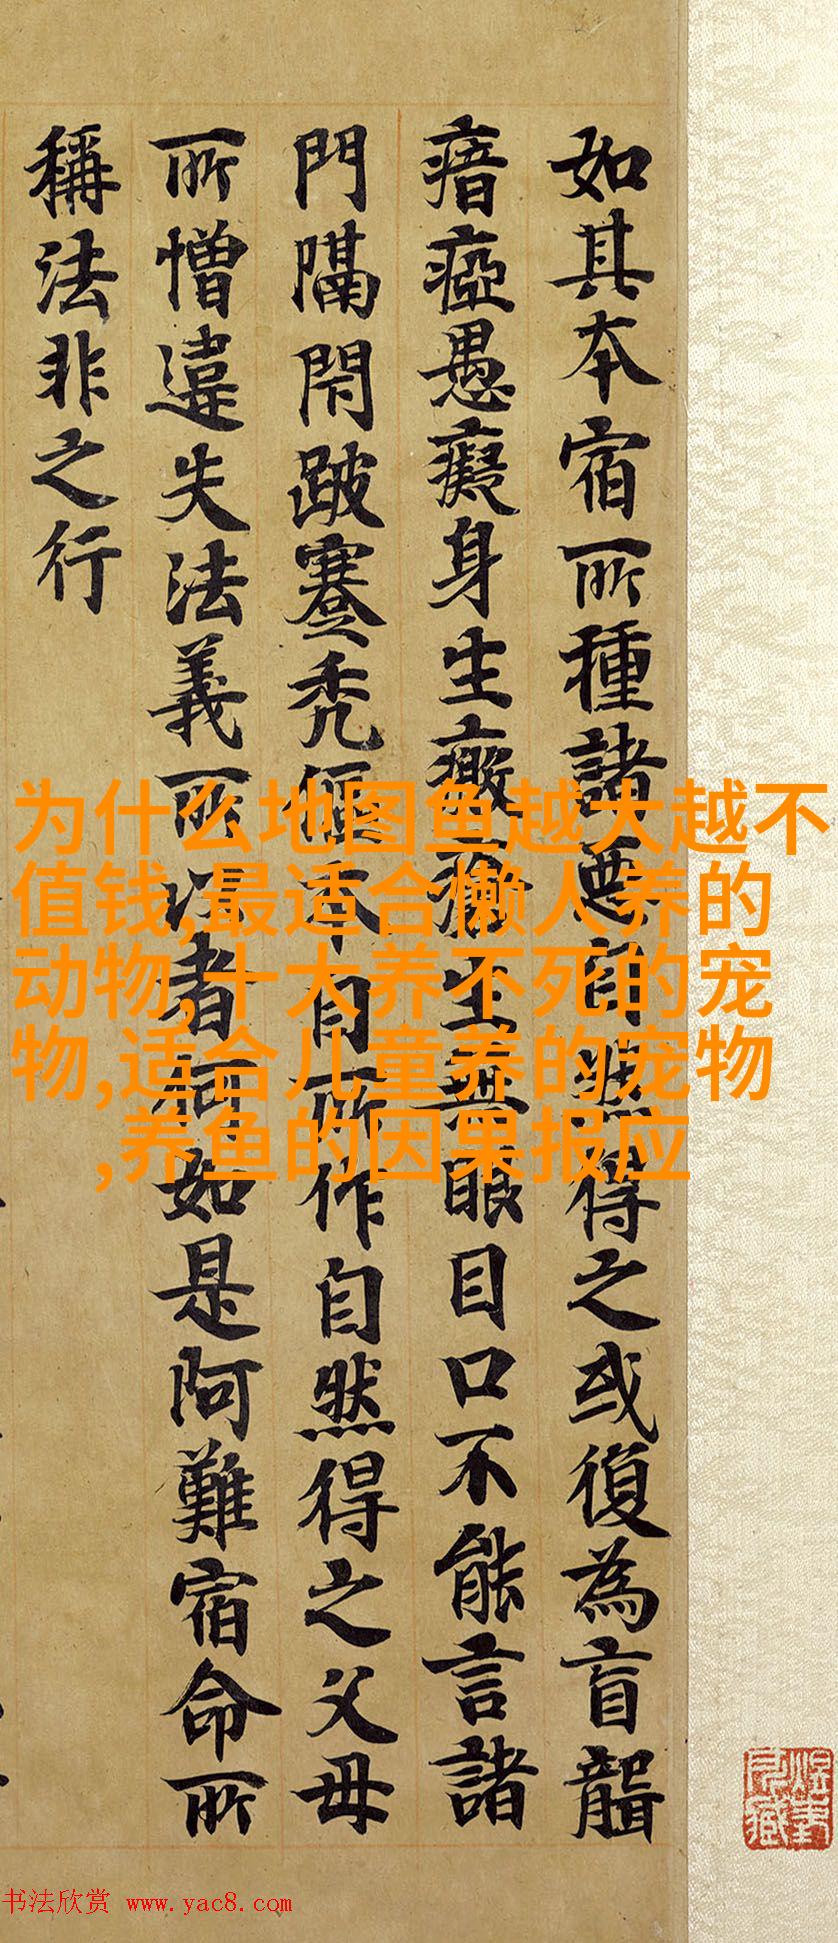 如其本宿所種諸惡自然得之或復為盲聾
瘖瘂愚癡身生生無眼目口不能言諸
門隔閇跛蹇禿傴本自所作自然得之父母
所憎違失法義所以者何如是阿難宿命所
稱法非之行
为什么地图鱼越大越不
值钱,最适合懒人养的
动物,十大养不死的宠
物,适合儿童养的宠物
,养鱼的因果报应
书法欣赏 www.yac8.com